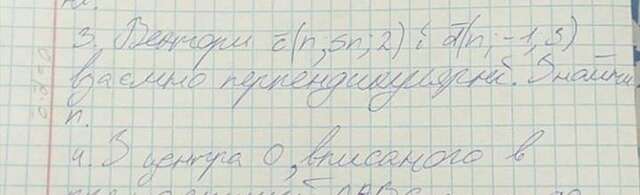 3. Вектори c̄(n; 5n; 2) і d̄(n; -1; 3)
взаємно перпендикулярні. Знайти
n.
4. З центра O, вписаного в